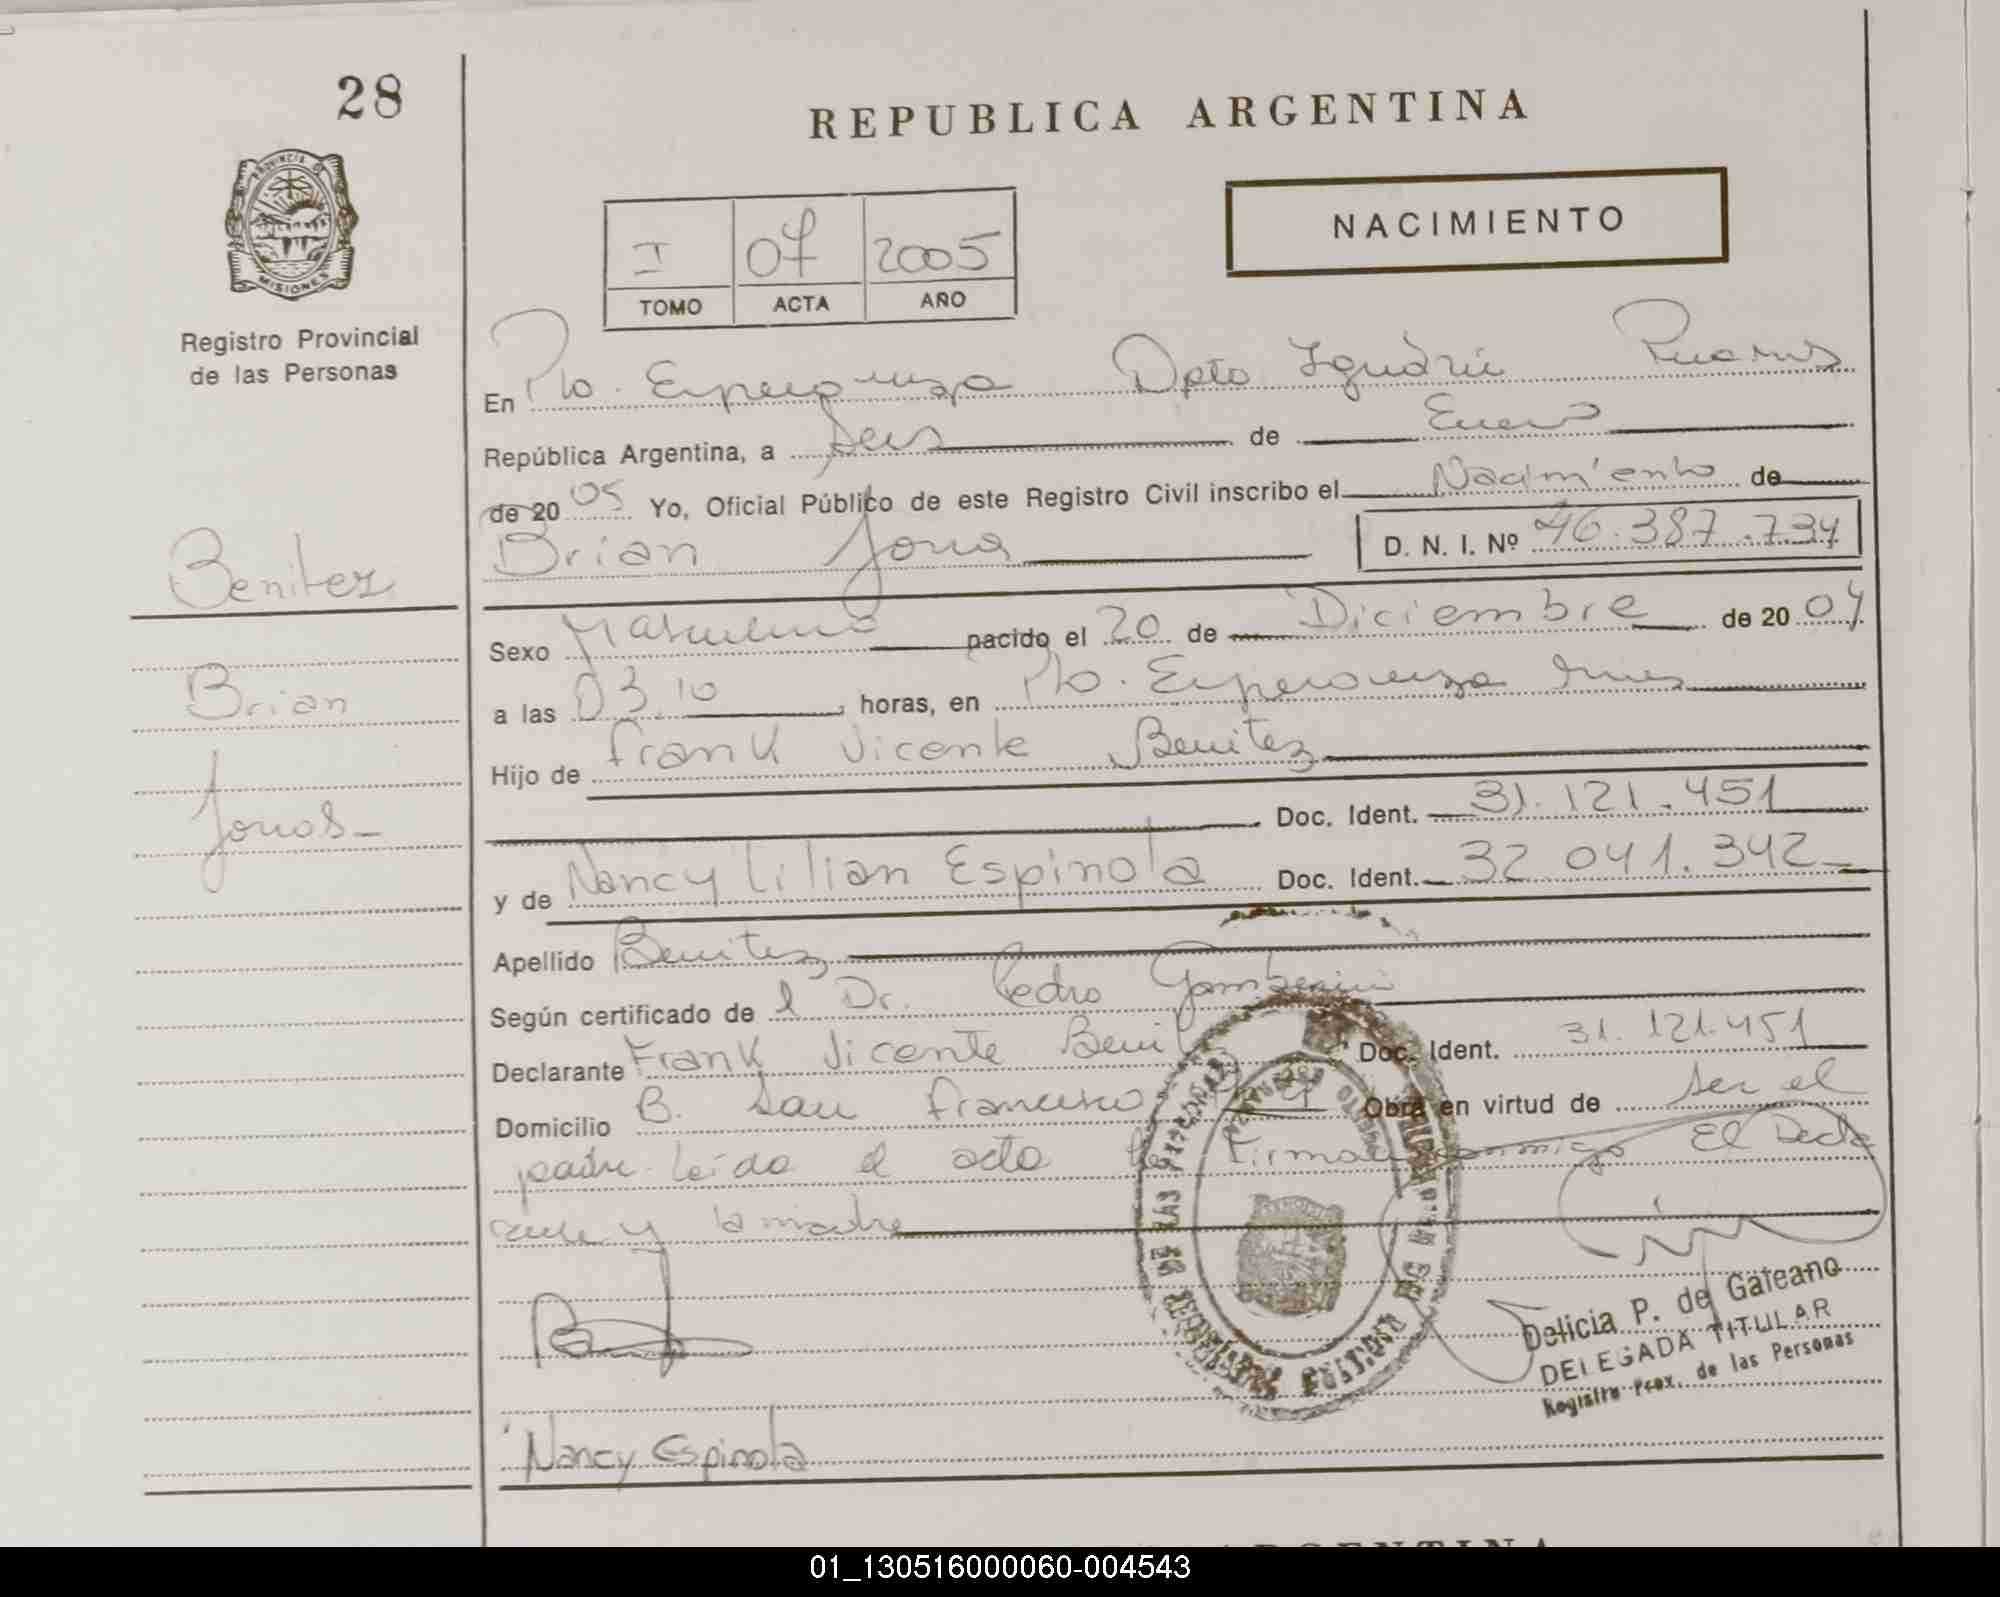 28
REPUBLICA ARGENTINA
PROVINCIA DE
MISIONES
Registro Provincial
de las Personas
NACIMIENTO
I 07 2005
TOMO ACTA AÑO
En Pto. Esperanza Dpto Iguazú
República Argentina, a Seis de Enero
de 20 05 Yo, Oficial Público de este Registro Civil inscribo el Nacimiento de
Brian Jonas D. N. I. Nº 46.387.734
Benitez
Brian
Jonas
Sexo Masculino nacido el 20 de Diciembre de 20 04
a las 03.10 horas, en Pto. Esperanza
Hijo de Frank Vicente Benitez
Doc. Ident. 31.121.451
y de Nancy Lilian Espinola Doc. Ident. 32.041.342
Apellido Benitez
Según certificado de l Dr. Pedro
Declarante Frank Vicente Doc. Ident. 31.121.451
Domicilio B. San Francisco Obra en virtud de ser el
padre leída el acta la Firman conmigo El Decla
rante y la madre
Delicia P. de Galeano
DELEGADA TITULAR
Registro Prov. de las Personas
Nancy Espinola
01_130516000060-004543